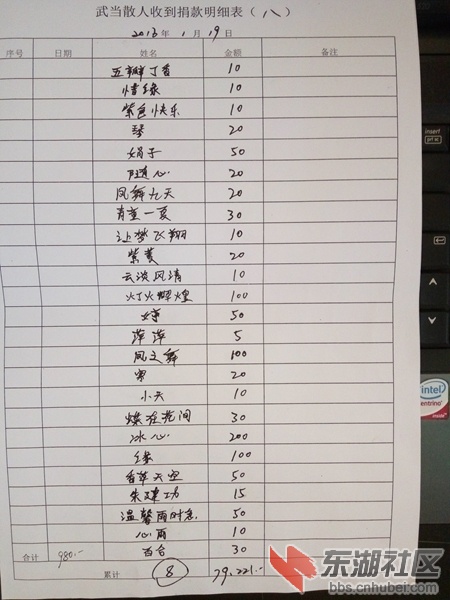 武当散人收到捐款明细表(八)
2013年 1月 19日
序号 日期 姓名 金额 备注
五瓣丁香 10
惜缘 10
紫色快乐 10
琴 20
娟子 50
随心 20
凤舞九天 20
青重一夏 30
让梦飞翔 10
紫黄 20
云淡风清 10
灯火辉煌 100
婷 50
萍萍 5
凤之舞 100
寒 20
小天 10
烨在花间 30
冰心 200
缘 100
香草天空 50
朱建功 15
温馨雨时急 50
心雨 10
合计 980.- 百合 30
累计 8 79,221.-
insert
prt sc
intel
Centrino
东湖社区
bbs.cnhubei.com